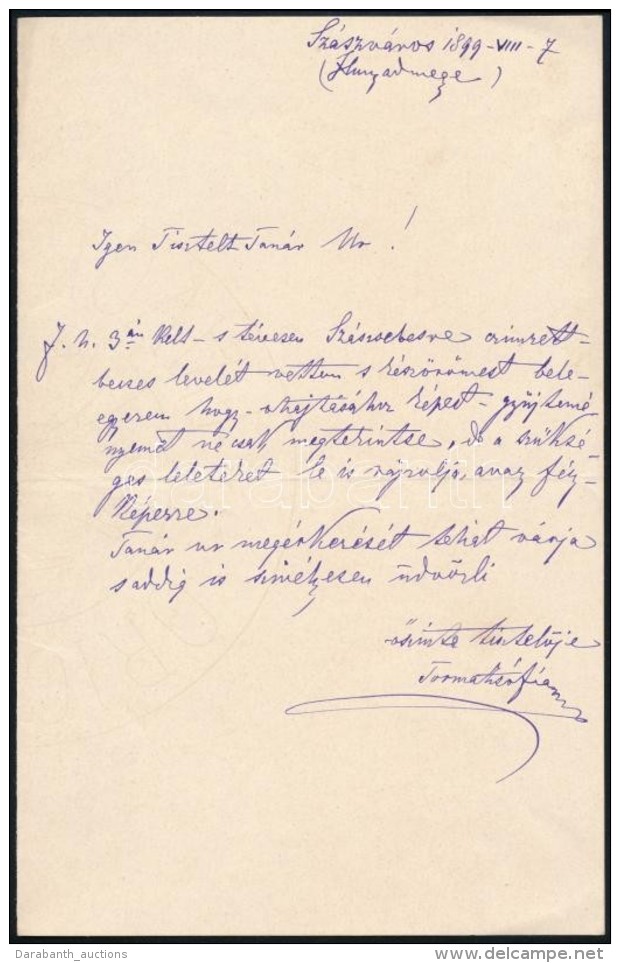 Szászváros 1899-VIII-7
(Hunyadmegye)
Igen Tisztelt Tanár Ur!
f. h. 3án kelt - s tévesen Szászsebesre czimzett -
becses levelét vettem s készörömest bele-
egyezem hogy - ohajtásához képest - gyüjtemé
nyemet ne csak megtekintse, de a szüksé
ges leteteket le is rajzolja, avagy fény-
képezze.
Tanár ur megérkezését tehát várja
s addig is szivélyesen üdvözli
őszinte tisztelője
Torma Zsófia
darabanth
Darabanth_auctions
delcampe.net